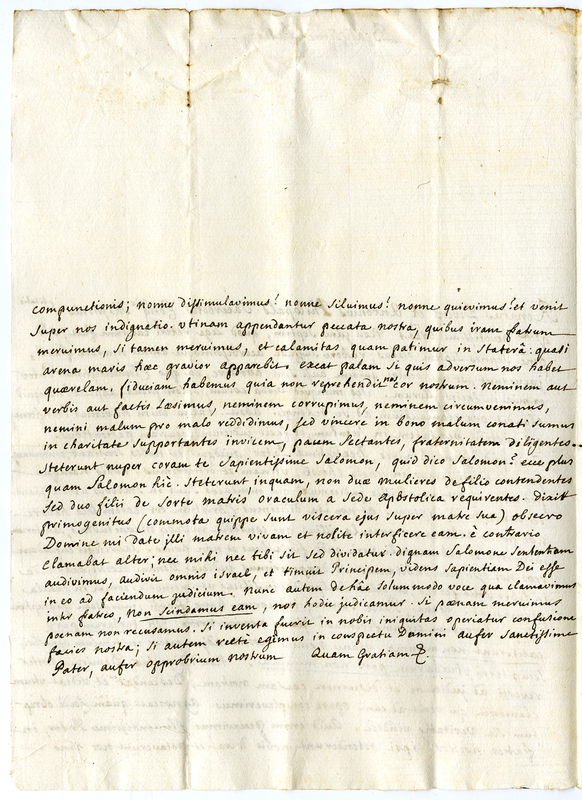 compunctionis; nonne dissimulavimus? nonne siluimus? nonne quievimus? et venit
super nos indignatio. Utinam appendantur peccata nostra, quibus iram fratrum
meruimus, si tamen meruimus, et calamitas quam patimur in staterâ: quasi
arena maris hæc gravior apparebit. exeat palam si quis adversum nos habet
quærelam, fiduciam habemus quia non reprehendit nos cor nostrum. Neminem aut
verbis aut factis læsimus, neminem corrupimus, neminem circumvenimus,
nemini malum pro malo reddidimus, sed vincere in bono malum conati sumus
in charitate supportantes invicem, pacem sectantes, fraternitatem diligentes..
steterunt nuper coram te sapientissime Salomon, quid dico Salomon? ecce plus
quam Salomon hîc. steterunt, inquam, non duæ mulieres de filio contendentes
sed duo filii de sorte matris oraculum a Sede Apostolica requirentes. dixit
primogenitus (commota quippe sunt viscera ejus super matre sua) obsecro
Domine mi date illi matrem vivam et nolite interficere eam. è contrario
clamabat alter; nec mihi nec tibi sit sed dividatur. dignam Salomone sententiam
audivimus, audivit omnis israel, et timuit Principem, videns sapientiam Dei esse
in eo ad faciendum judicium. Nunc autem de hâc solummodo voce qua clamavimus
inter fratres, Non scindamus eam, nos hodie judicamur. Si pœnam meruimus
poenam non recusamus. si inventa fuerit in nobis iniquitas operiatur confusione
facies nostra; si autem rectè egimus in conspectu Domini aufer sanctissime
Pater, aufer opprobrium nostrum Quam Gratiam &.